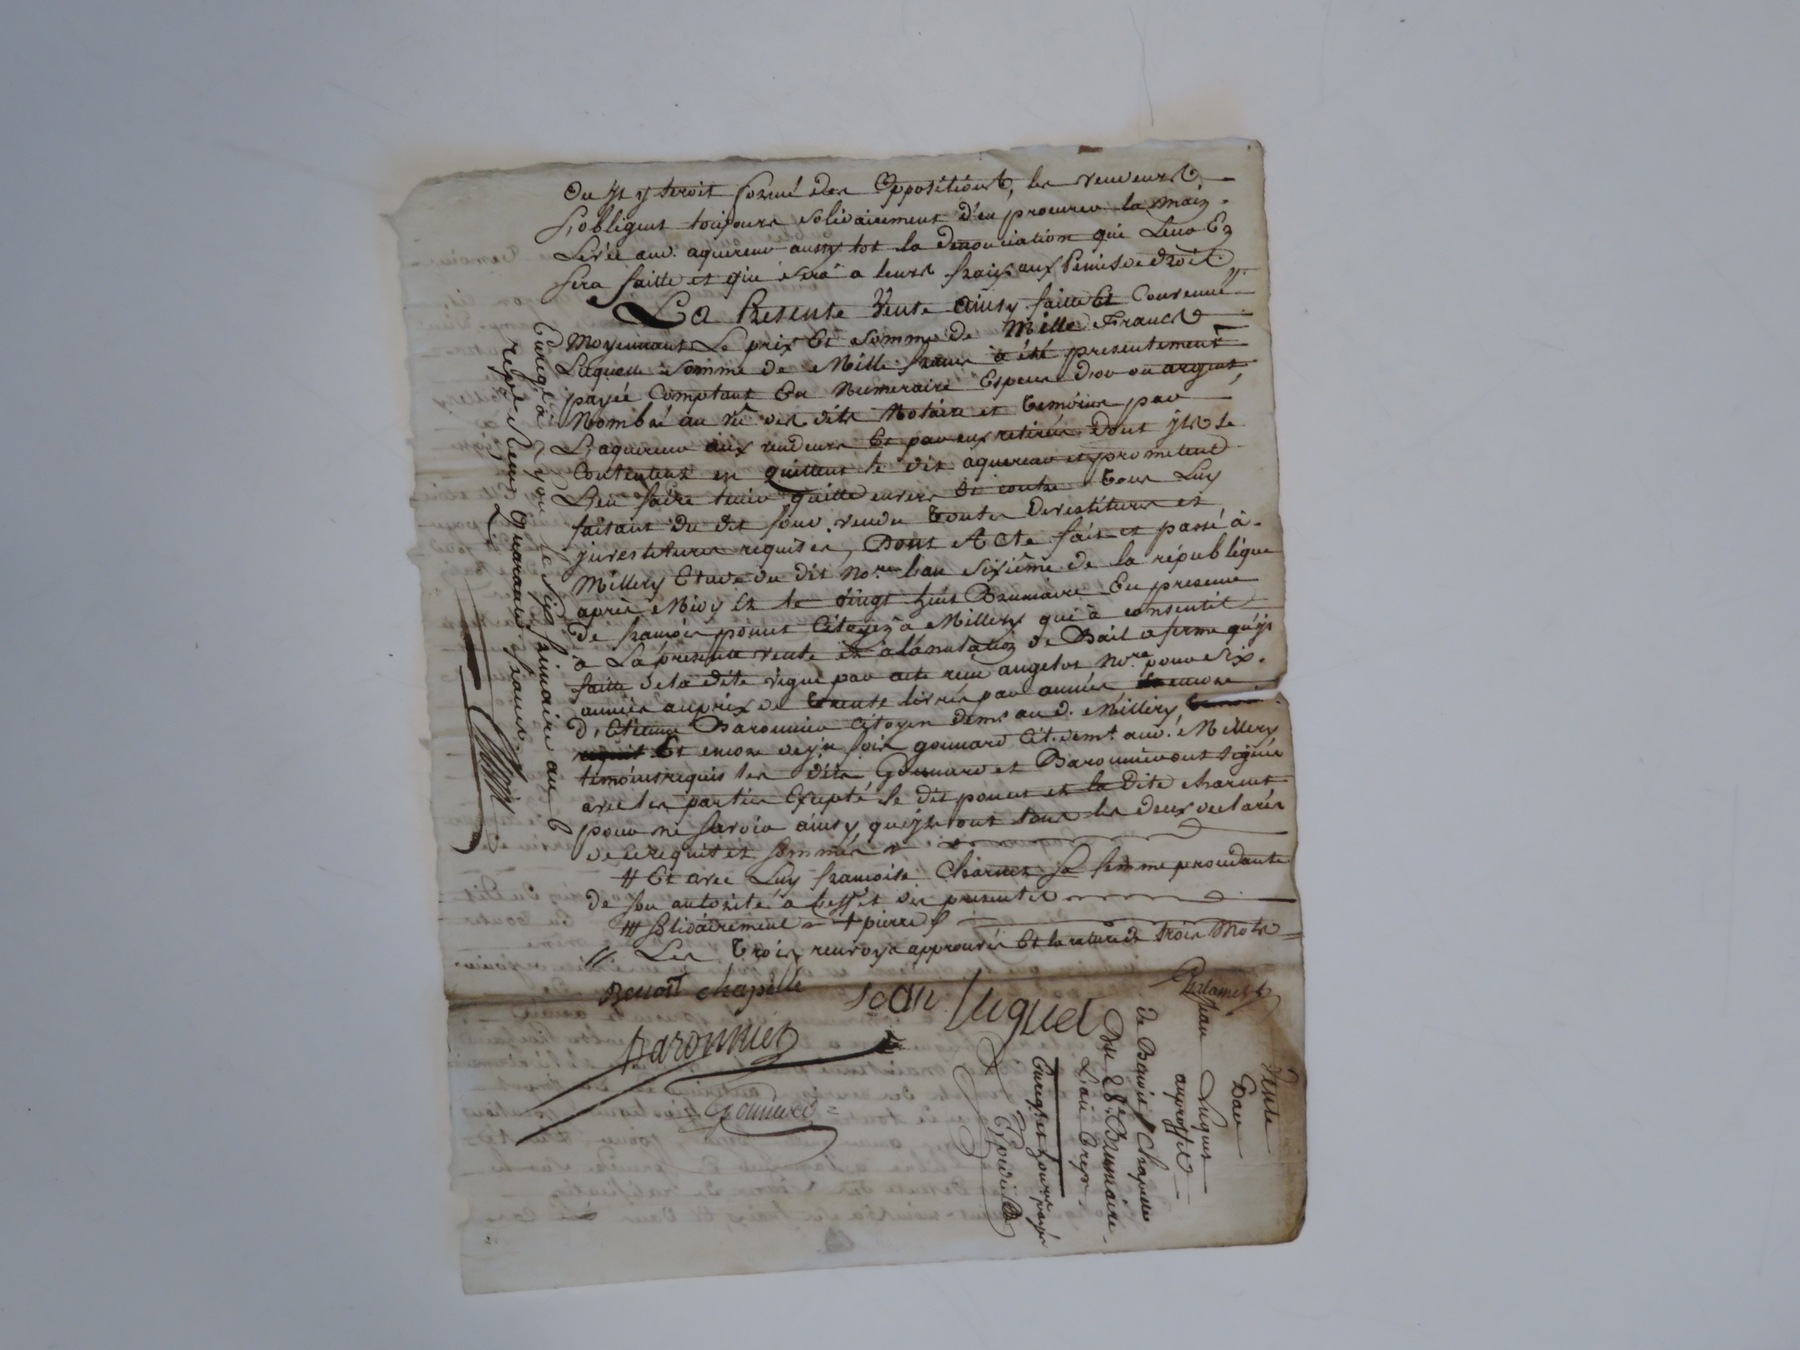 ou Il y seroit formé des oppositions, les vendeurs
s'obligent toujours solidairement d'en procurer la main
levée aud. aquereur aussy tot la denonciation qui leur en
sera faitte et que sera a leurs fraix aux peines de droit
La presente vente ainsy faitte et convenue
moyennant le prix et somme de mille francs
laquelle somme de mille francs a été presentement
payée comptant en numeraire especes d'or ou argent,
nombré au vû des dits notaire et temoins par
l'aquereur aux vendeurs et par eux retirés dont yls se
contentent en quittent le dit aquereur et promettent
l'en faire tenir quitte envers et contre tous luy
faisant du dit fond vendu toutes devestitures et
jnvestitures requises, Dont Acte fait et passé à
Millery Etude du dit No.re l'an sixième de la république
après midy et le vingt huit Brumaire En presence
de françois poncet citoyen à Millery qui à consentit
à la presente vente et à l'anulation de Bail a ferme qu'jl
faitte de la dite vigne par acte reçu angelot No.re pour six
années au prix de trente livres par année encore
d'Etienne Baronnier citoyen dem.t au d. Millery
Et encore de gonnard cit. dem.t aud. Millery
temoins requis les dits Gonnard et Baronnier ont signé
avec les parties Excepté le dit poncet et la dite charvet
pour ne savoir ainsy qu'jls ont tous les deux declarés
de ce requis et sommés
# Et avec Luy françoise Charvet sa femme procedante
de son autorité à l'effet des presentes
## solidairement + pierre
// Les trois renvoys approuvés Et la rature de trois mots
Benoit chapelle
Jean luguet
Baronnier
Gonnard
Enregré à Lyon le six frimaire an 6
reçu quarante francs
Vente
Par
Jean Luguet
auproffit
de Benoit Chapelle
Du 28.e Brumaire
L'an 6
Enregt et